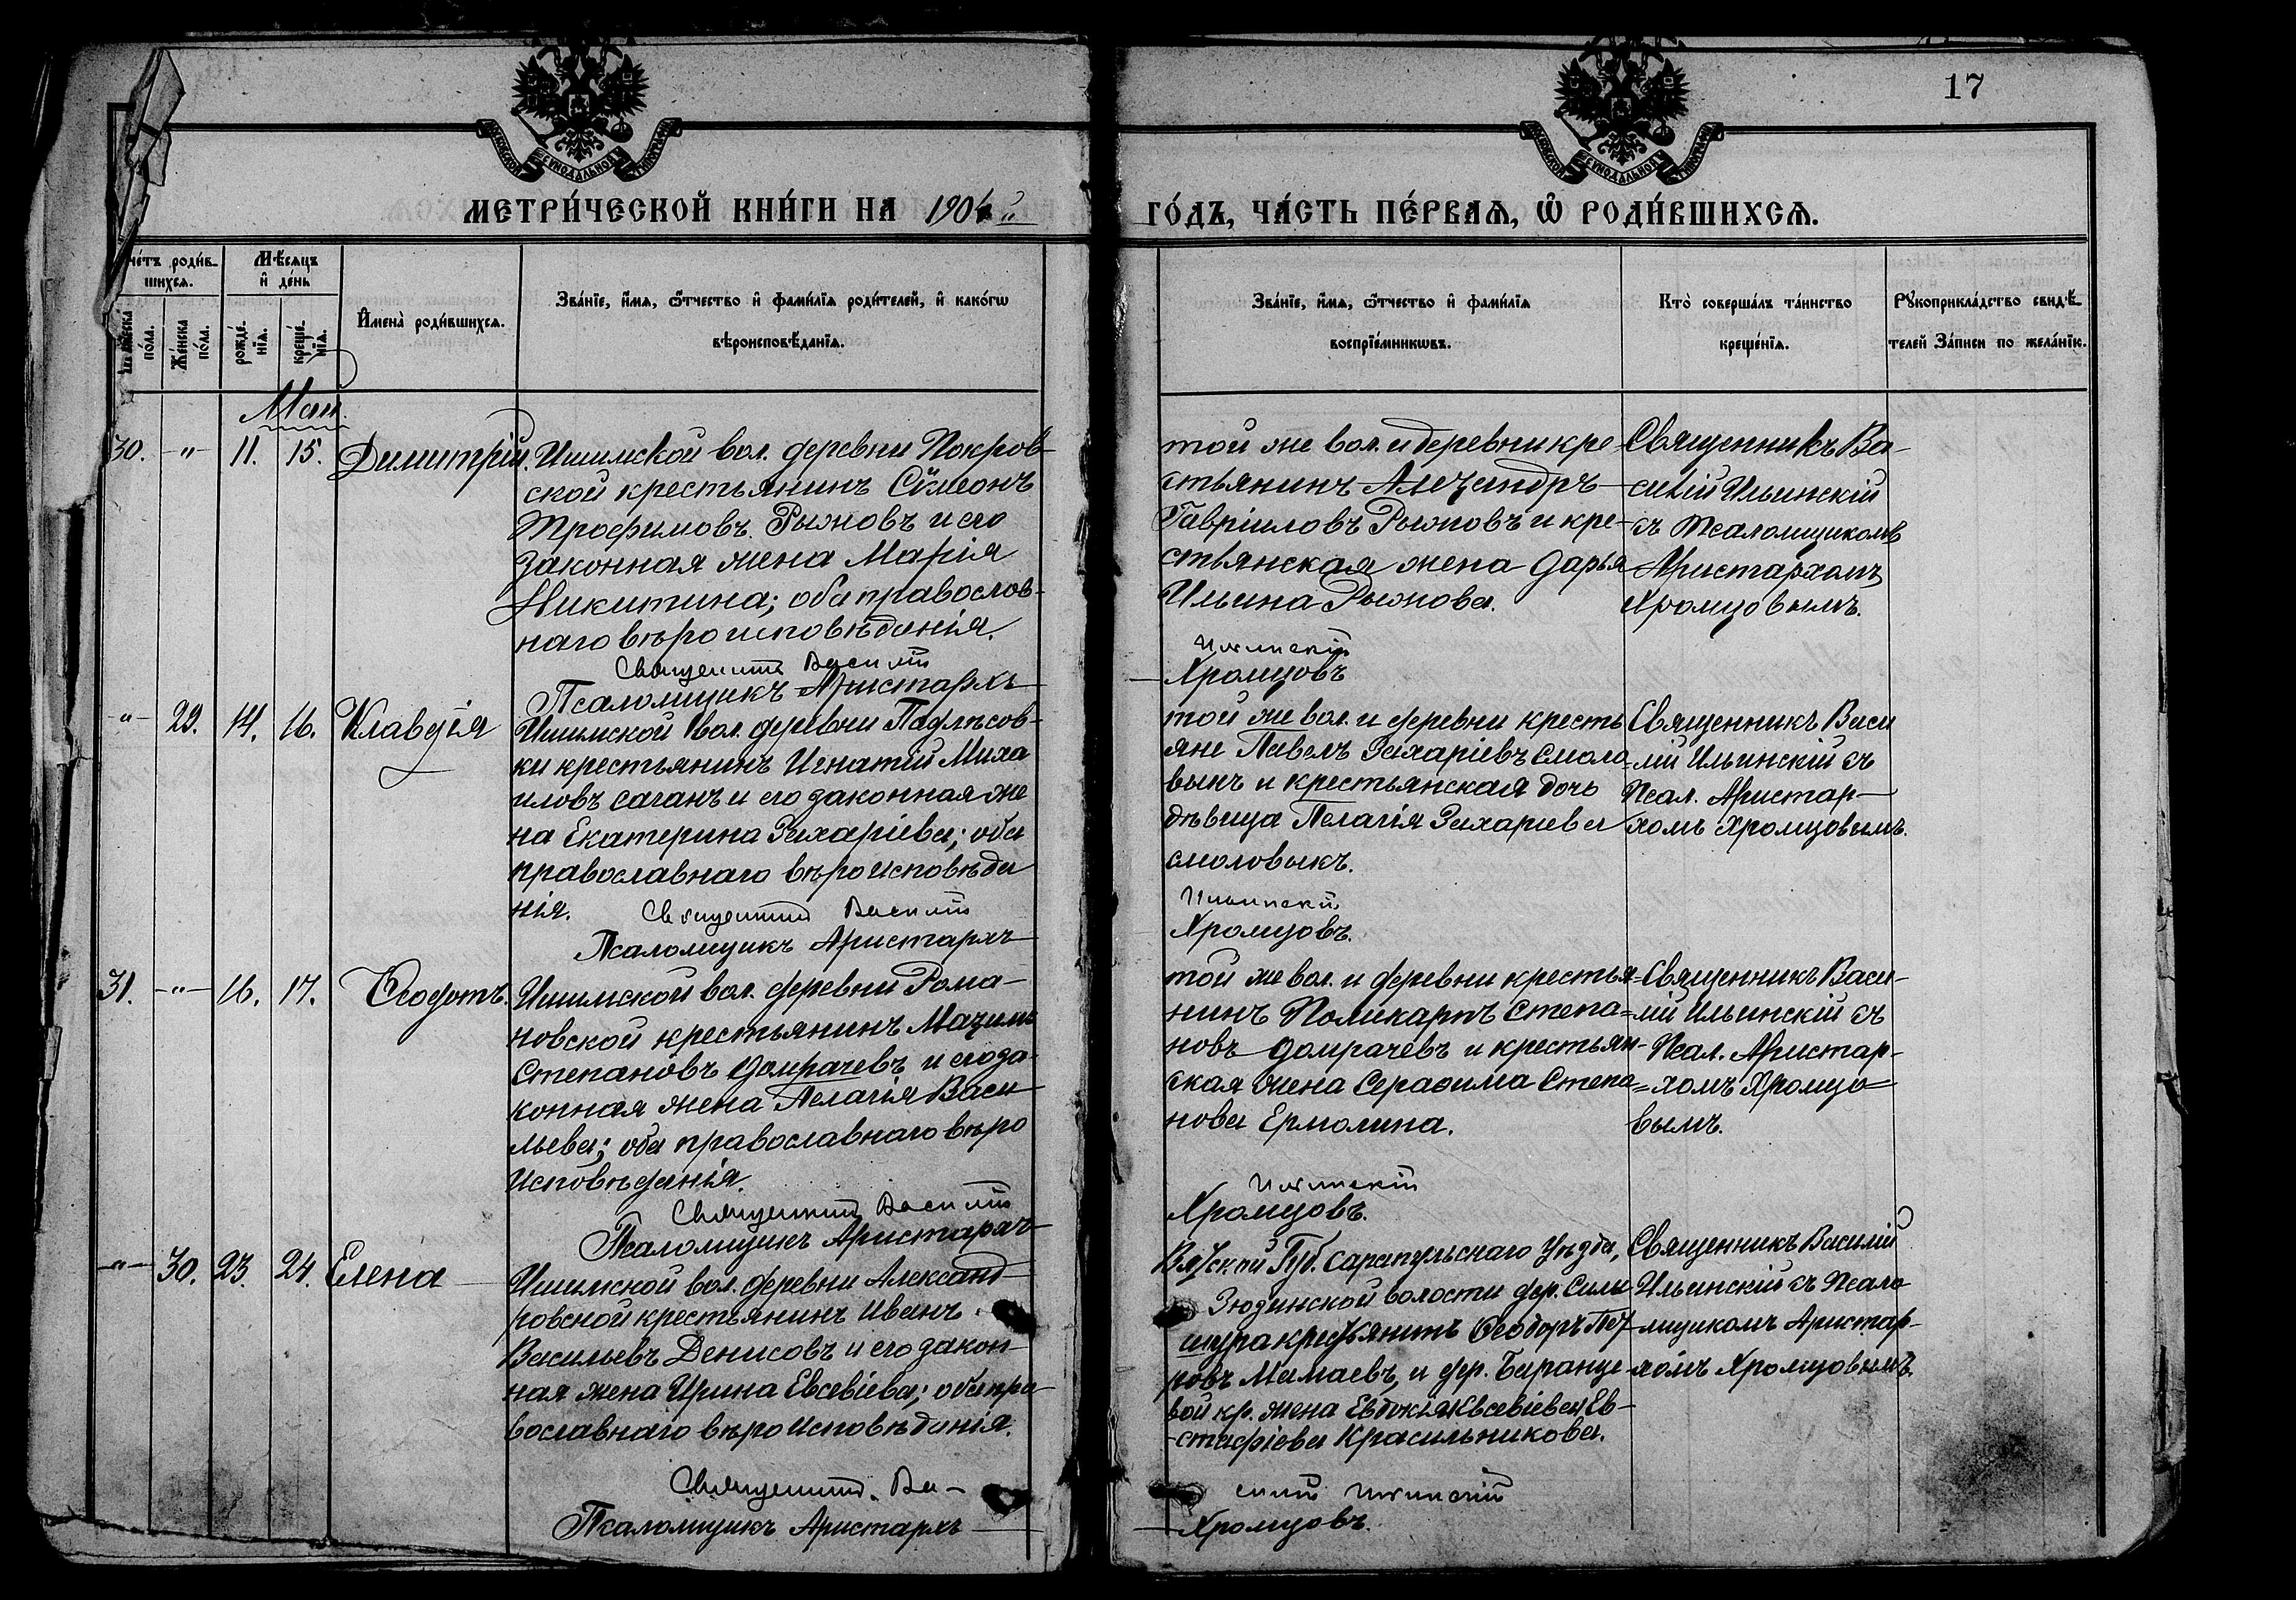 17
МЕТРИ́ЧЕСКОЙ КНИ́ГИ НА 1906 й
ГО́ДЪ, ЧА́СТЬ ПЕ́РВАѦ, Ѽ РОДИ́ВШИХСѦ.
Сче́тъ роди́в-
шихсѧ.
Мѣ́сѧцъ
и҆ де́нь
Му́жеска
по́ла.
Же́нска
по́ла.
рожде́-
нїѧ.
креще́-
нїѧ.
И҆мена̀ роди́вшихсѧ.
Зва́нїе, и҆́мѧ, ѻ҆́тчество и҆ фами́лїѧ роди́телей, и҆ како́гѡ
вѣроисповѣ́данїѧ.
Зва́нїе, и҆́мѧ, ѻ҆́тчество и҆ фами́лїѧ
воспрїе́мникѡвъ.
Кто̀ соверша́лъ та́инство
креще́нїѧ.
Рꙋкоприкла́дство свидѣ́-
телей За́писи по жела́нїю.
Май.
30. -"- 11. 15. Димитрій.
Ишимской вол. деревни Покров-
ской крестьянинъ Сѵмеонъ
Трофимовъ Рыжовъ и его
законная жена Марія
Никитина; оба православ-
наго вѣроисповѣданія.
Священникъ Василій
Псаломщикъ Аристархъ
той же вол. и деревни кре-
стьянинъ Алеѯандръ
Гавріиловъ Рыжовъ и кре-
стьянская жена Дарья
Ильина Рыжова.
Ильинскій
Хромцовъ
Священникъ Ва-
силій Ильинскій
съ Псаломщикомъ
Аристархомъ
Хромцовымъ.
-"- 29. 14. 16. Клавдія
Ишимской вол. деревни Подлѣсов-
ки крестьянинъ Игнатій Миха
иловъ Саганъ и его законная же
на Екатерина Захаріева; оба
православнаго вѣроисповѣда
нія. Священникъ Василій
Псаломщикъ Аристархъ
той же вол. и деревни кресть
яне Павелъ Захаріевъ Смоло
выкъ и крестьянская дочь
дѣвица Пелагія Захаріева
Смоловыкъ.
Ильинскій
Хромцовъ.
Священникъ Васи
лій Ильинскій съ
Псал. Аристар-
хомъ Хромцовымъ.
31. -"- 16. 17. Ѳеодотъ.
Ишимской вол. деревни Рома-
новской крестьянинъ Маѯимъ
Степановъ Домрачевъ и его за-
конная жена Пелагія Васи-
льева; оба православнаго вѣро
исповѣданія.
Священникъ Василій
Псаломщикъ Аристархъ
той же вол. и деревни крестья-
нинъ Поликарпъ Степа=
новъ Домрачевъ и крестьян-
ская жена Серафима Степа=
нова Ермолина.
Ильинскій
Хромцовъ.
Священникъ Васи-
лій Ильинскій съ
Псал. Аристар-
хомъ Хромцо=
вымъ.
-"- 30. 23. 24. Елена
Ишимской вол. деревни Александ-
ровской крестьянинъ Иванъ
Васильевъ Денисовъ и его закон-
ная жена Ирина Евсевіева; оба пра-
вославнаго вѣроисповѣданія.
Священникъ Ва-
Псаломщикъ Аристархъ
Вятской Губ. Сарапульскаго Уѣзда,
Зюзинской волости дер.
крестьянинъ Ѳеодоръ Пет
ровъ Мамаевъ, и дер.
вой кр. жена Евдокія Ев-
стафіева Красильникова.
силій Ильинскій
Хромцовъ.
Священникъ Василій
Ильинскій съ Псало
мщикомъ Аристар-
хомъ Хромцовымъ.